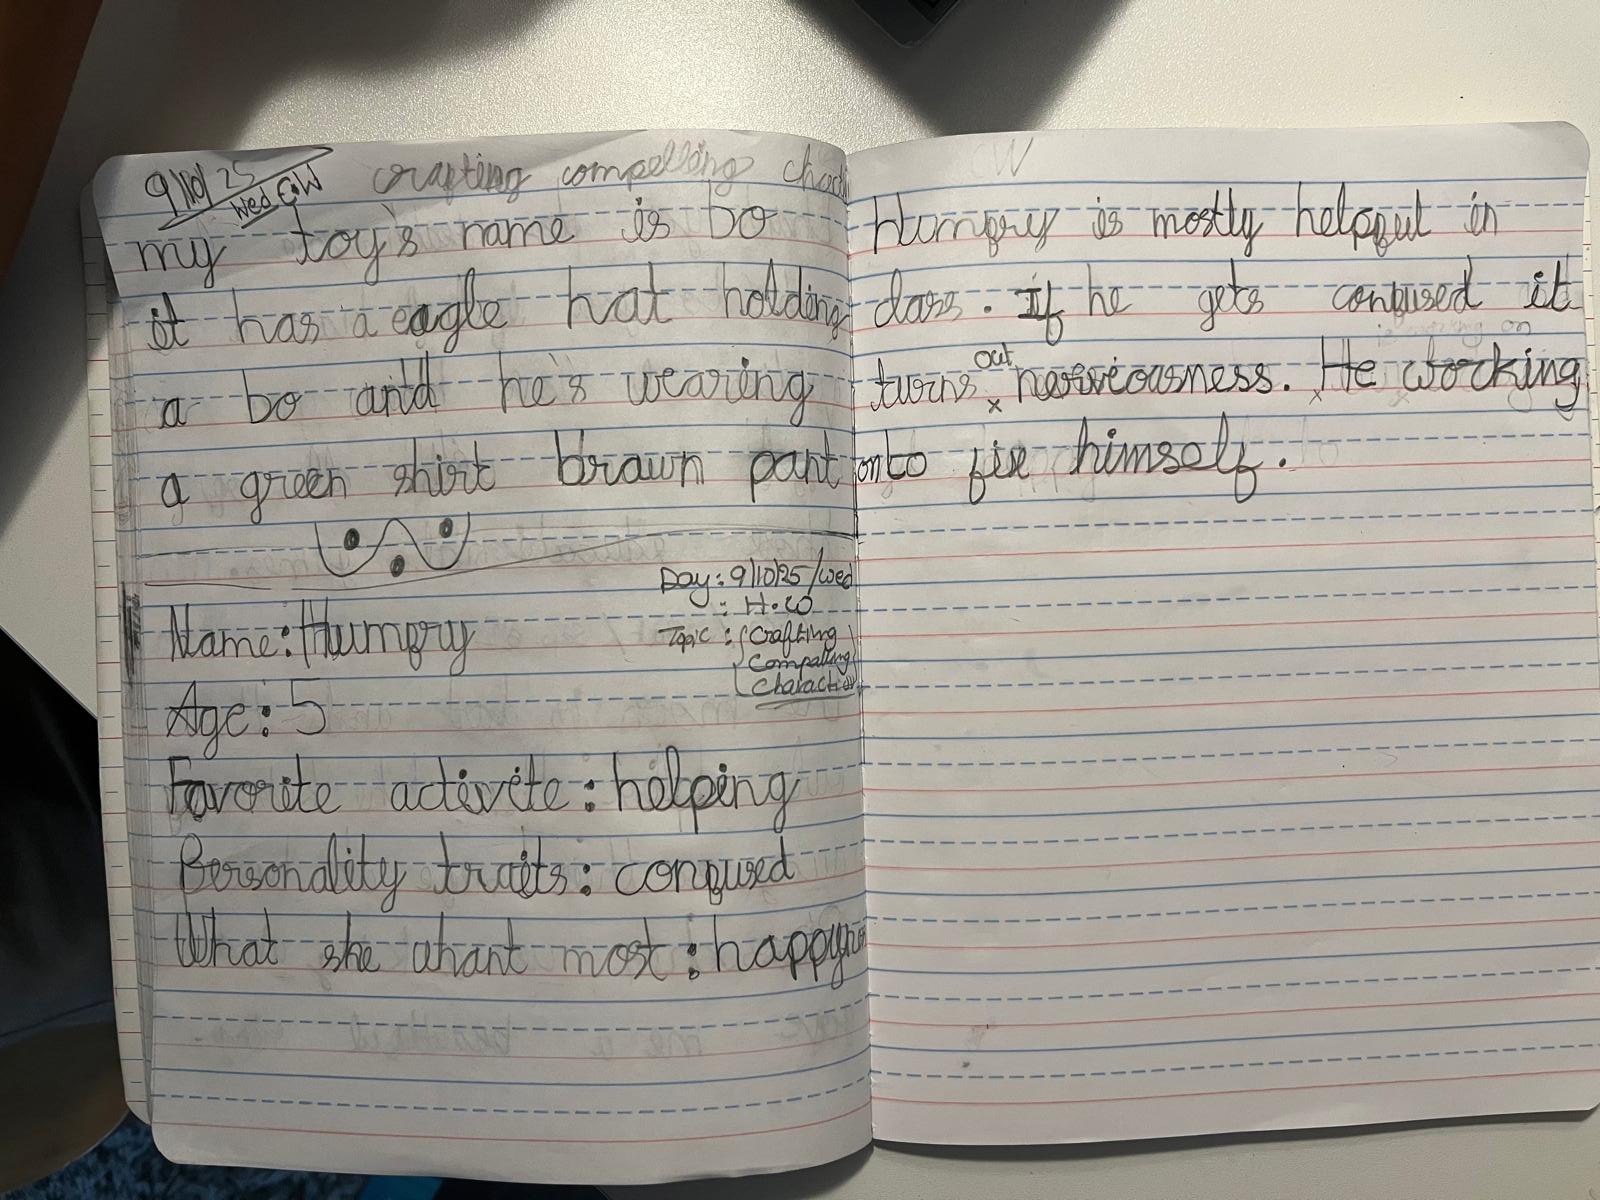 9/10/25
Wed C.W
crafting compelling
my toy's name is bo
it has a eagle hat holding
a bo and he's wearing
a green shirt brawn pant
Day: 9/10/25/wed
: H.W
Topic: Crafting
Compalling
Charactior
Name: Humpry
Age: 5
Favorite activite: helping
Personality traits: confused
What she whant most: happyn
CW
Humpry is mostly helpful in
class. If he gets confused it
turns out nerviousness. He working
onto fix himself.